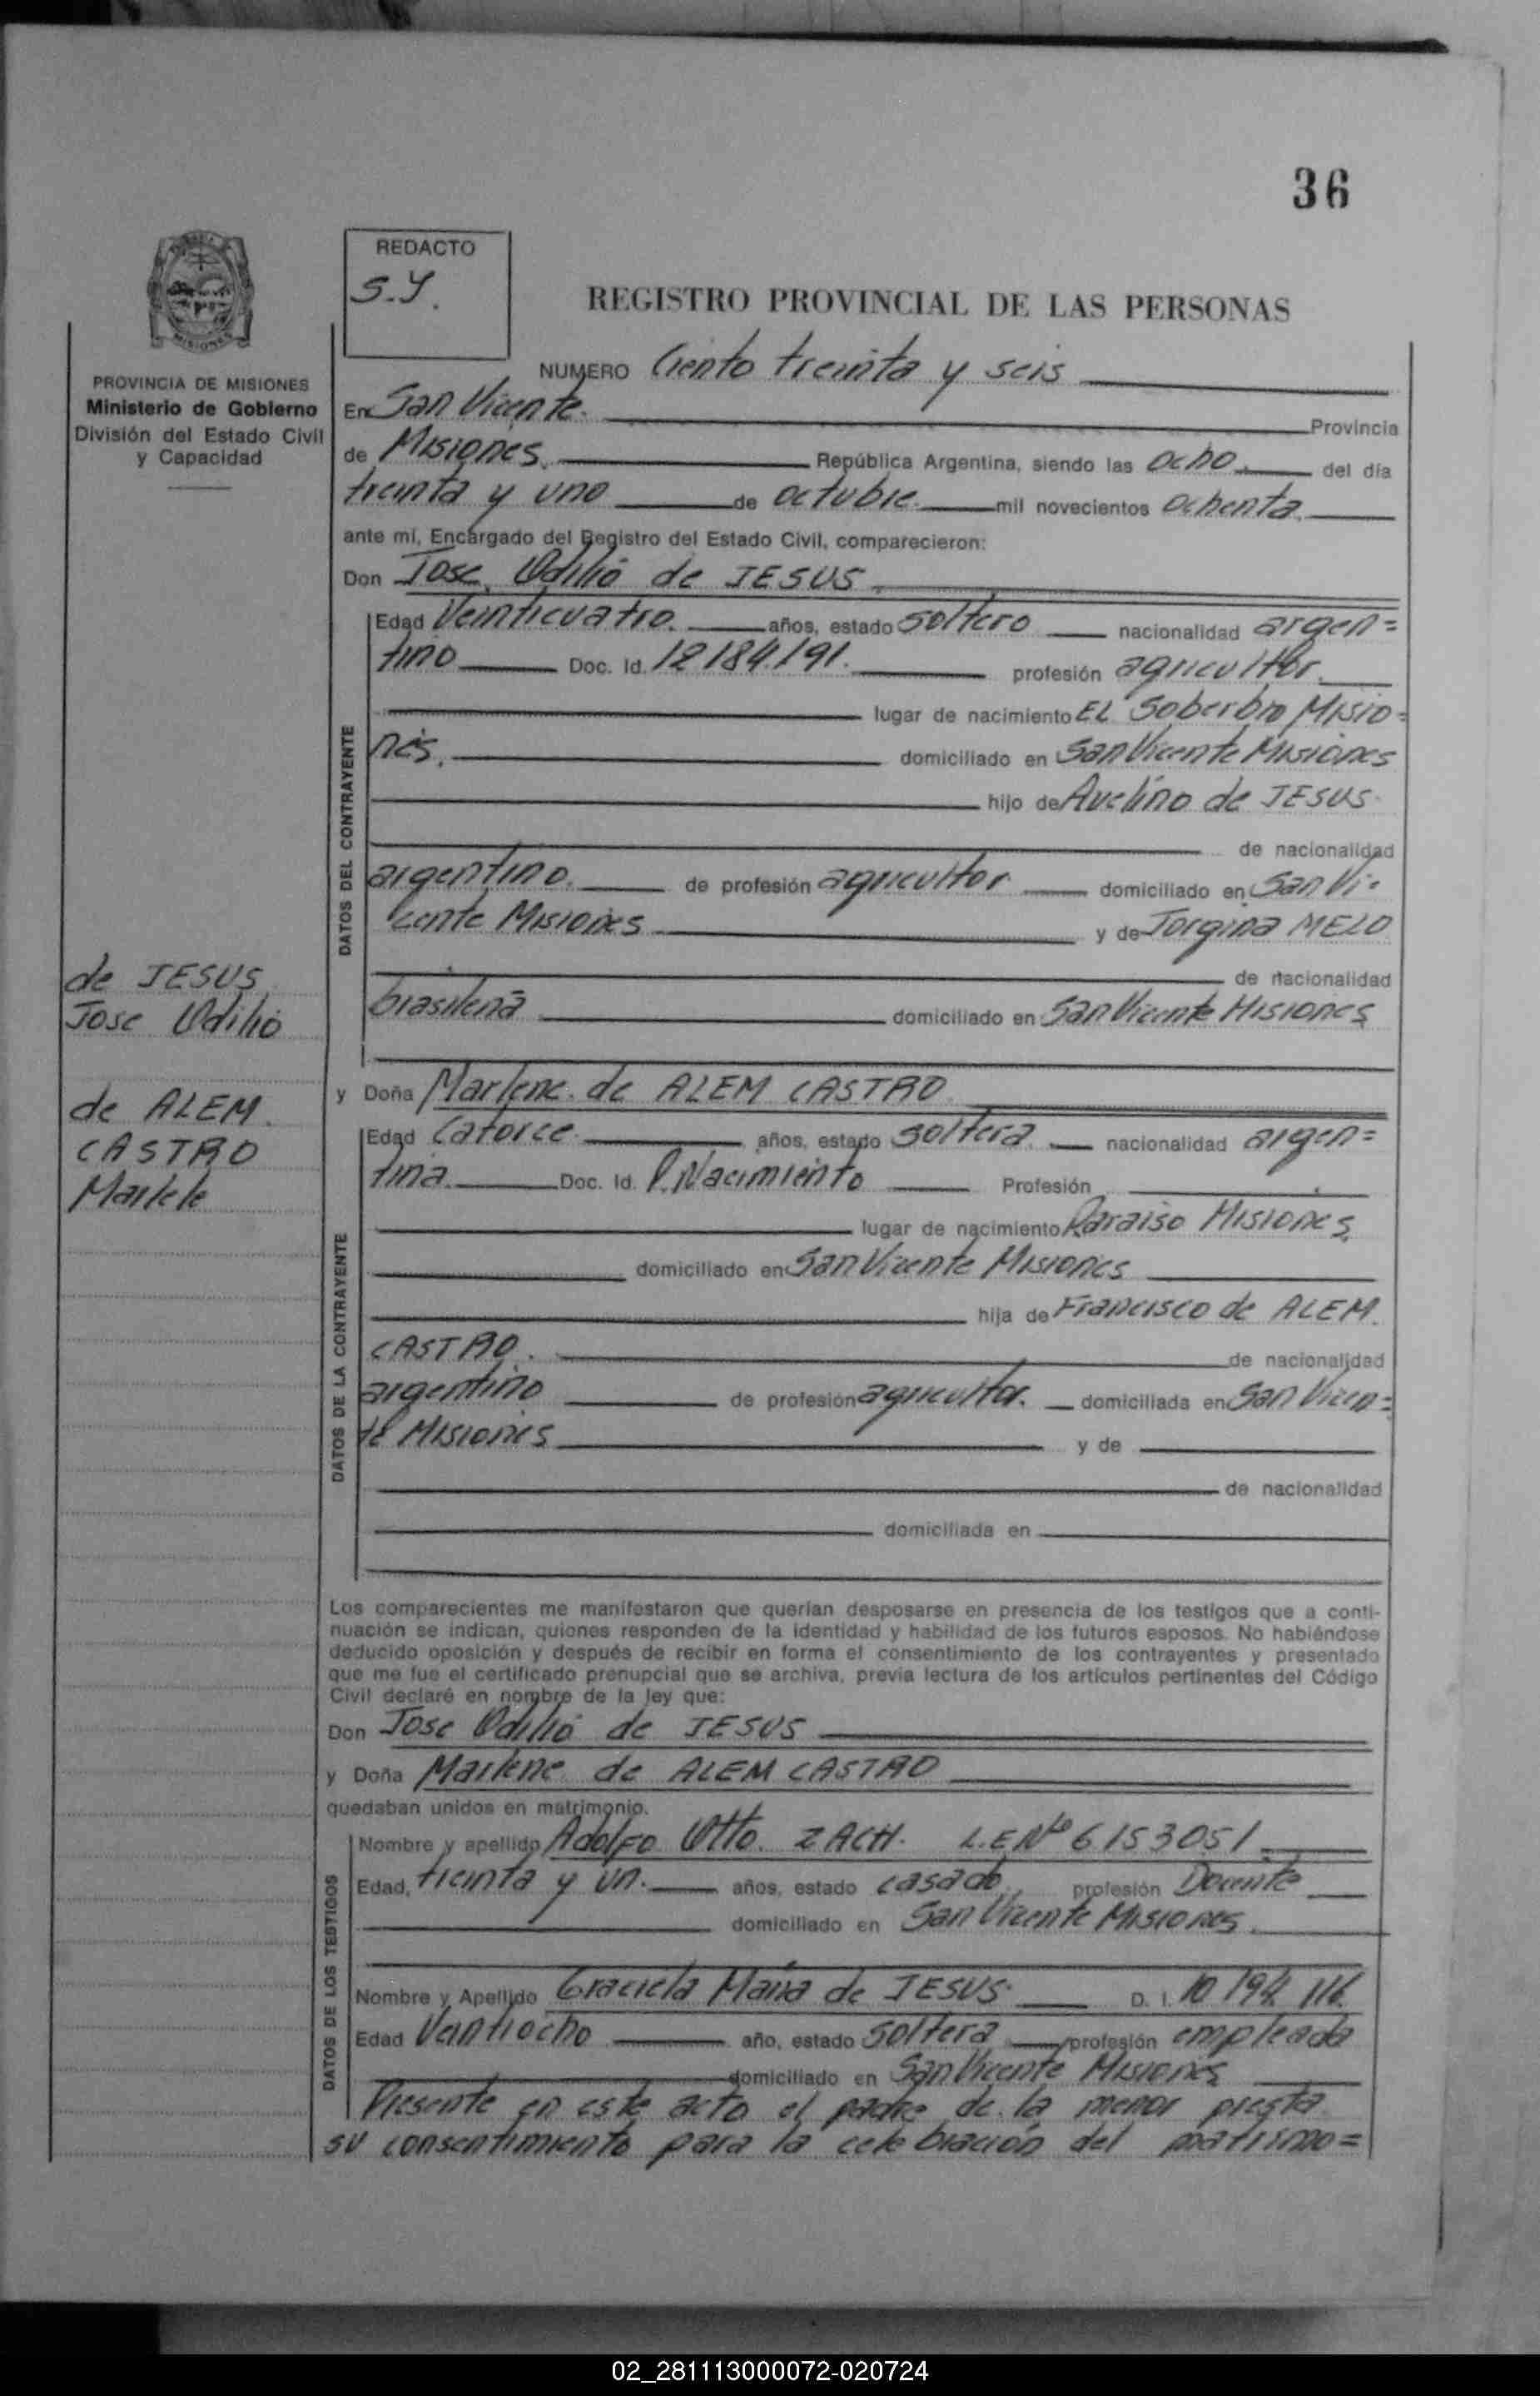 36
REDACTO
S.Y.
REGISTRO PROVINCIAL DE LAS PERSONAS
MISIONES
PROVINCIA DE MISIONES
Ministerio de Gobierno
División del Estado Civil
y Capacidad
NUMERO Ciento treinta y seis
En San Vicente. Provincia
de Misiones. República Argentina, siendo las ocho. del día
treinta y uno de octubre. mil novecientos ochenta.
ante mí, Encargado del Registro del Estado Civil, comparecieron:
Don Jose Odilio de JESUS.
Edad Veinticuatro. años, estado soltero nacionalidad argen=
tino Doc. Id. 12184.191. profesión agricultor.
lugar de nacimiento EL Soberbio Misio=
nes. domiciliado en San Vicente Misiones
hijo de Avelino de JESUS.
de nacionalidad
argentino. de profesión agricultor domiciliado en San Vi=
cente Misiones y de Jorgina MELO
de nacionalidad
brasileña domiciliado en San Vicente Misiones
DATOS DEL CONTRAYENTE
de JESUS
Jose Odilio
de ALEM.
CASTRO
Marlele
y Doña Marlene de ALEM CASTRO.
Edad Catorce. años, estado soltera. nacionalidad argen=
tina. Doc. Id. P. Nacimiento Profesión
lugar de nacimiento Paraiso Misiones.
domiciliado en San Vicente Misiones
hija de Francisco de ALEM.
CASTRO. de nacionalidad
argentino de profesión agricultor. domiciliada en San Vicen=
te Misiones y de
de nacionalidad
domiciliada en
DATOS DE LA CONTRAYENTE
Los comparecientes me manifestaron que querían desposarse en presencia de los testigos que a conti-
nuación se indican, quiones responden de la identidad y habilidad de los futuros esposos. No habiéndose
deducido oposición y después de recibir en forma el consentimiento de los contrayentes y presentado
que me fue el certificado prenupcial que se archiva, previa lectura de los artículos pertinentes del Código
Civil declaré en nombre de la ley que:
Don Jose Odilio de JESUS
y Doña Marlene de ALEM CASTRO
quedaban unidos en matrimonio.
Nombre y apellido Adolfo Otto. ZACH. L.E Nº 6153051.
Edad, treinta y un. años, estado casado profesión Docente
domiciliado en San Vicente Misiones.
Nombre y Apellido Graciela Maria de JESUS. D. I. 10 194 116.
Edad Veintiocho año, estado soltera profesión empleada
domiciliado en San Vicente Misiones
DATOS DE LOS TESTIGOS
Presente en este acto el padre de la menor presta
su consentimiento para la celebración del matrimo=
02_281113000072-020724